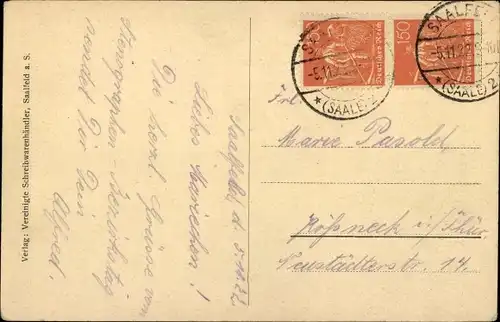 Verlag: Vereinigte Schreibwarenhändler, Saalfeld a. S.
Saalfeld, d. 5.11.22
Liebes Mariechen!
Die herzl. Grüsse vom
Stenographen-Bezirkstag
sendet Dir Dein
Alfred.
150
Deutsches Reich
150
Deutsches Reich
SAALFELD
-5.11.22
*(SAALE) 2
SAALFELD
-5.11.22
*(SAALE) 2
Frl.
Marie Pasold,
Pößneck i/Thür
Neustädterstr. 14.